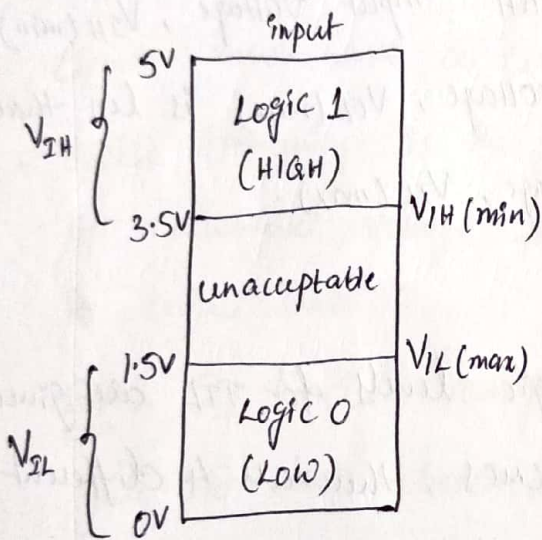 input
5V
Logic 1
(HIGH)
VIH
3.5V
VIH (min)
unacceptable
1.5V
VIL (max)
Logic 0
(LOW)
VIL
0V